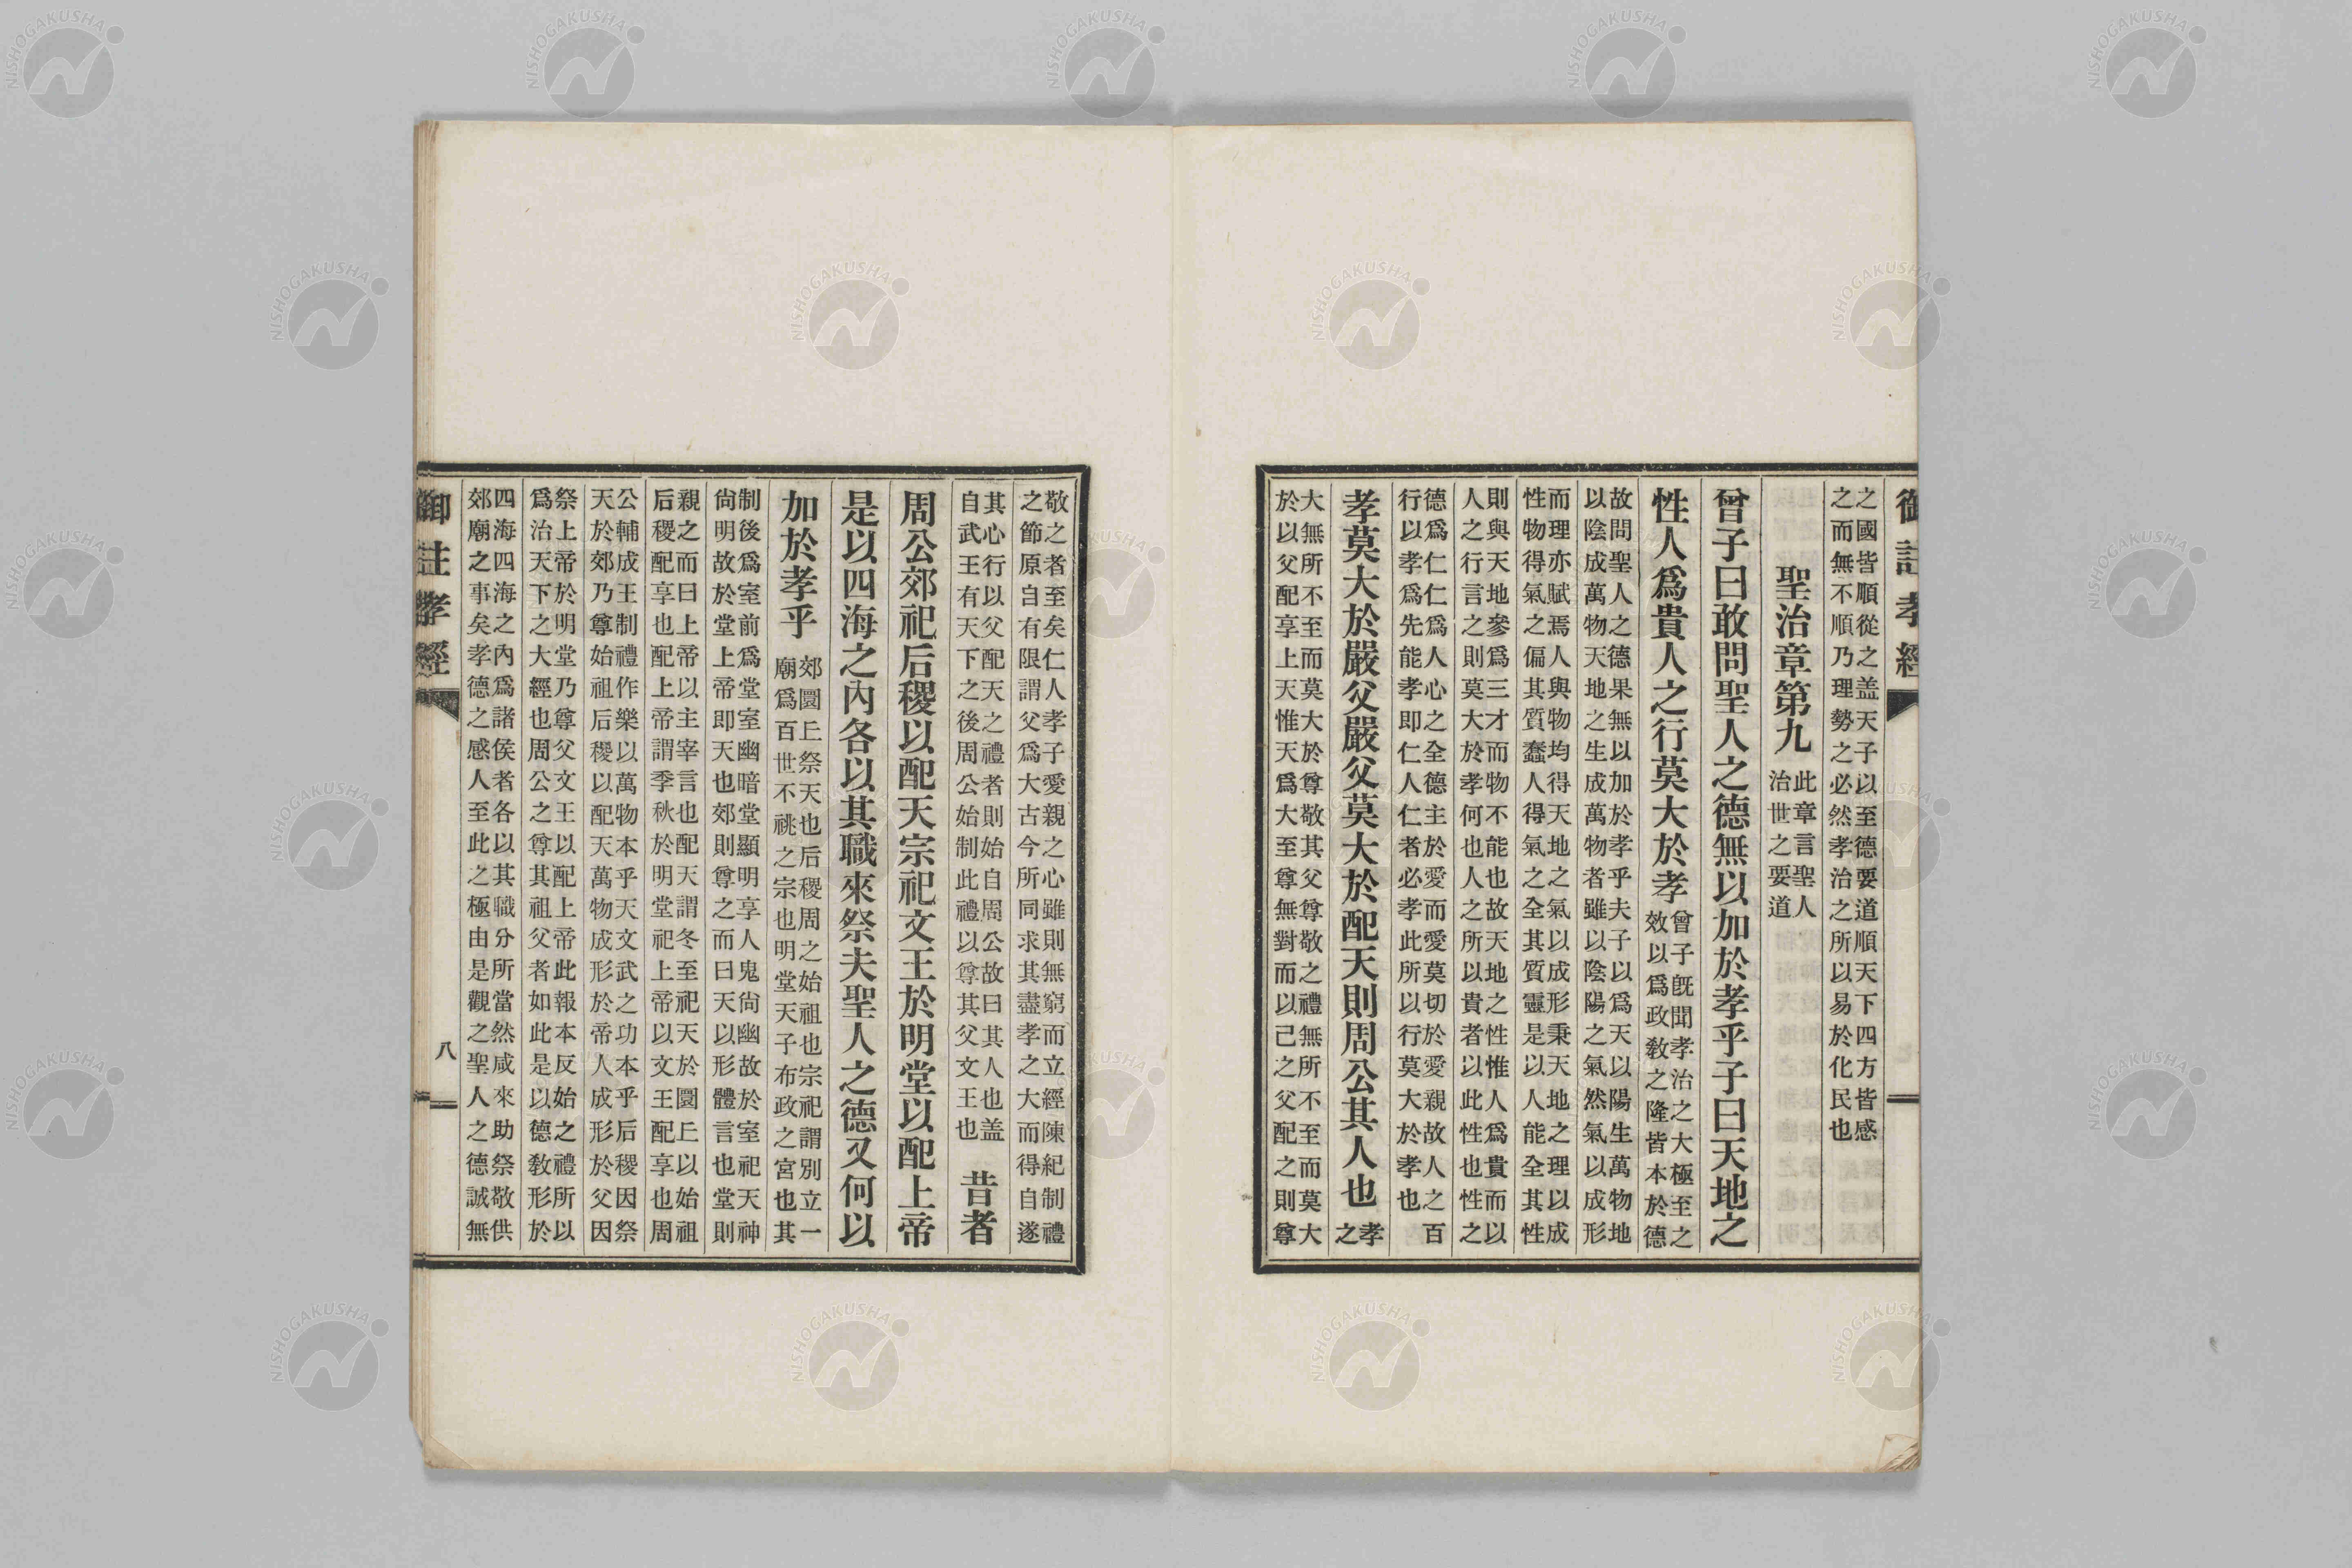 御註孝經
之國皆順從之盖天子以至德要道順天下四方皆感
之而無不順乃理勢之必然孝治之所以易於化民也
聖治章第九
此章言聖人
治世之要道
曾子曰敢問聖人之德無以加於孝乎子曰天地之
性人爲貴人之行莫大於孝
曾子旣聞孝治之大極至之
效以爲政敎之隆皆本於德
故問聖人之德果無以加於孝乎夫子以爲天以陽生萬物地
以陰成萬物天地之生成萬物者雖以陰陽之氣然氣以成形
而理亦賦焉人與物均得天地之氣以成形秉天地之理以成
性物得氣之偏其質蠢人得氣之全其質靈是以人能全其性
則與天地參爲三才而物不能也故天地之性惟人爲貴而以
人之行言之則莫大於孝何也人之所以貴者以此性也性之
德爲仁仁爲人心之全德主於愛而愛莫切於愛親故人之百
行以孝爲先能孝即仁人仁者必孝此所以行莫大於孝也
孝莫大於嚴父嚴父莫大於配天則周公其人也
孝
之
大無所不至而莫大於尊敬其父尊敬之禮無所不至而莫大
於以父配享上天惟天爲大至尊無對而以己之父配之則尊
敬之者至矣仁人孝子愛親之心雖則無窮而立經陳紀制禮
之節原自有限謂父爲大古今所同求其盡孝之大而得自遂
其心行以父配天之禮者則始自周公故曰其人也盖
自武王有天下之後周公始制此禮以尊其父文王也
昔者
周公郊祀后稷以配天宗祀文王於明堂以配上帝
是以四海之內各以其職來祭夫聖人之德又何以
加於孝乎
郊圜丘祭天也后稷周之始祖也宗祀謂別立一
廟爲百世不祧之宗也明堂天子布政之宮也其
制後爲室前爲堂室幽暗堂顯明享人鬼尙幽故於室祀天神
尙明故於堂上帝即天也郊則尊之而曰天以形體言也堂則
親之而曰上帝以主宰言也配天謂冬至祀天於圜丘以始祖
后稷配享也配上帝謂季秋於明堂祀上帝以文王配享也周
公輔成王制禮作樂以萬物本乎天文武之功本乎后稷因祭
天於郊乃尊始祖后稷以配天萬物成形於帝人成形於父因
祭上帝於明堂乃尊父文王以配上帝此報本反始之禮所以
爲治天下之大經也周公之尊其祖父者如此是以德敎形於
四海四海之內爲諸侯者各以其職分所當然咸來助祭敬供
郊廟之事矣孝德之感人至此之極由是觀之聖人之德誠無
御註孝經
八